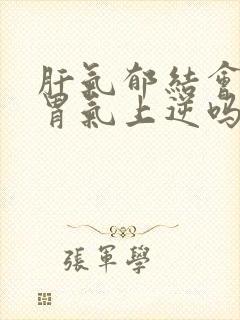 肝氣郁結會
胃氣上逆嗎
張軍學